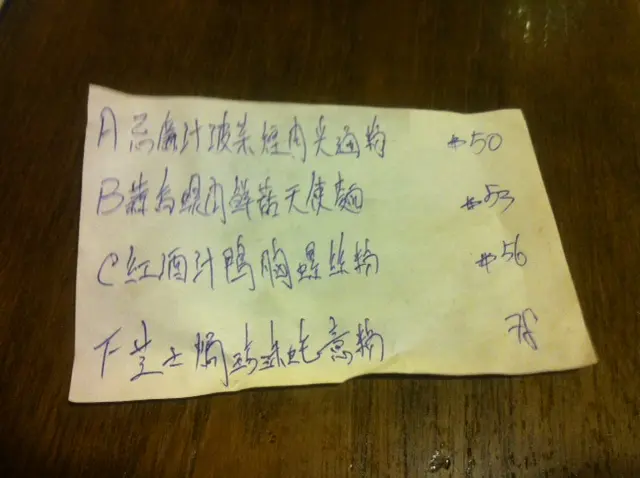 A 忌廉汁波菜烟肉尖通粉 $50
B 蒜烏蜆肉鮮菇天使麵 $53
C 紅酒汁鴨胸螺丝粉 $56
下芝士焗珍珠蚝意粉 78